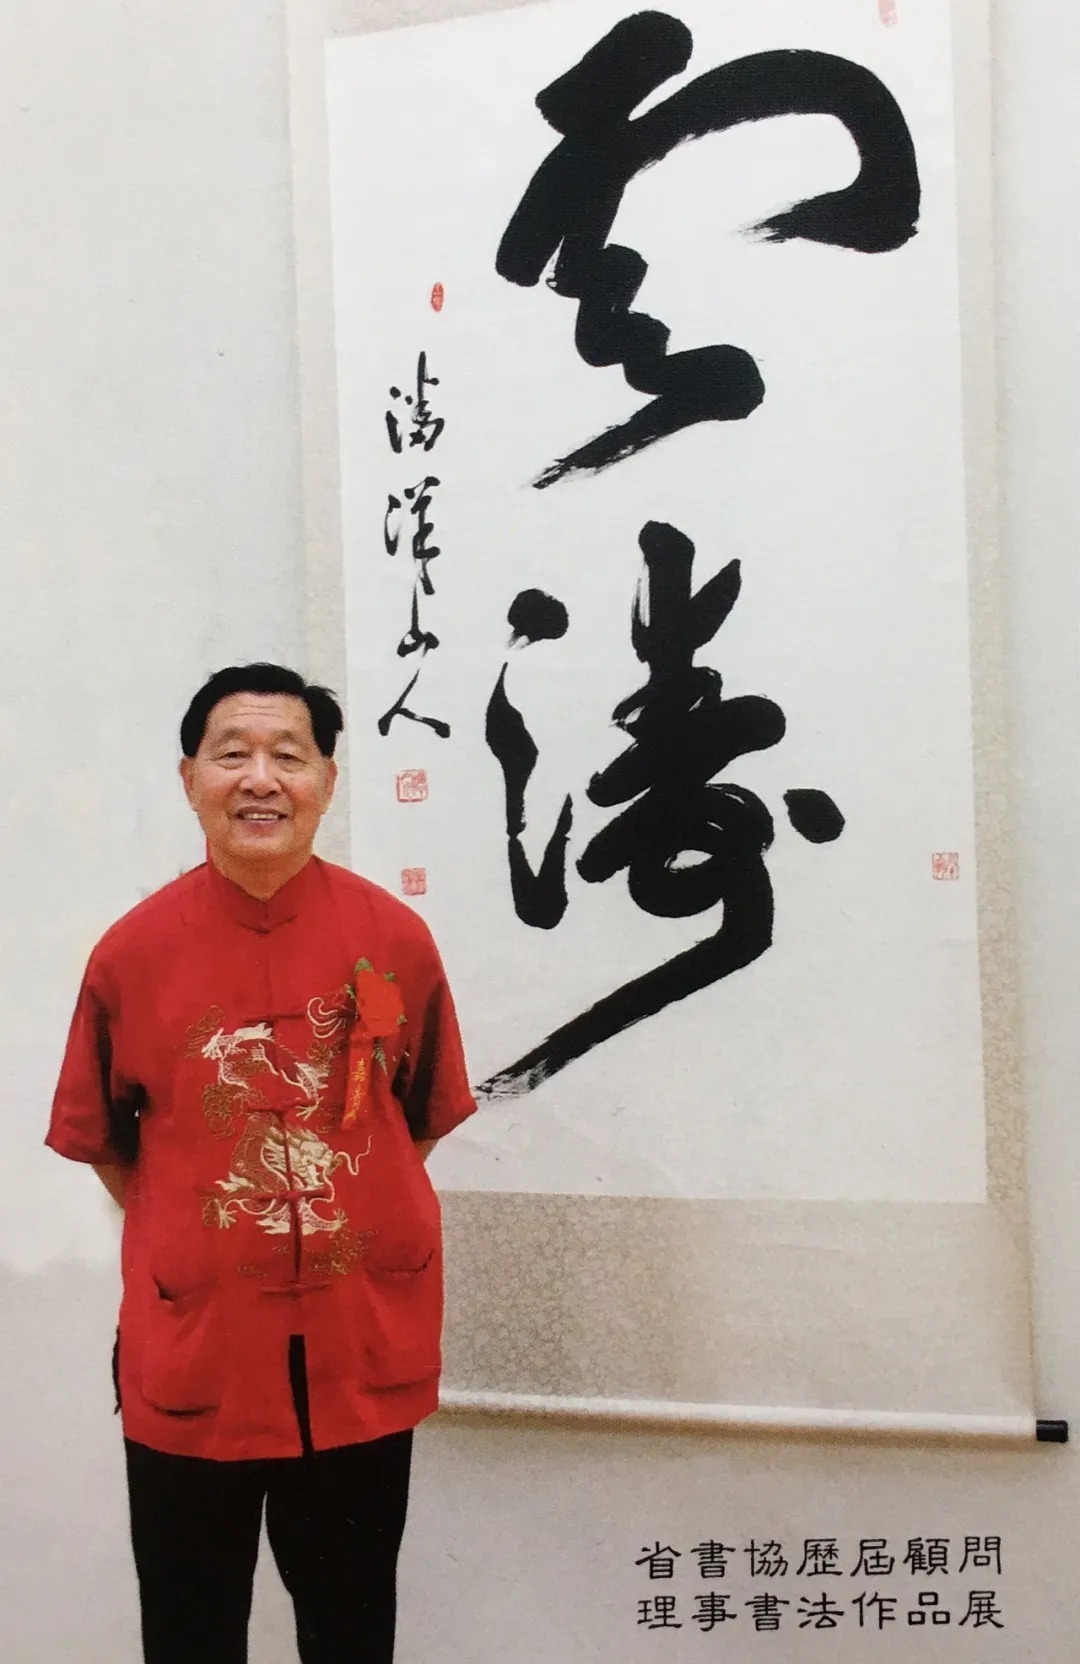 雲濤
潘洋山人
省書協歷屆顧問
理事書法作品展